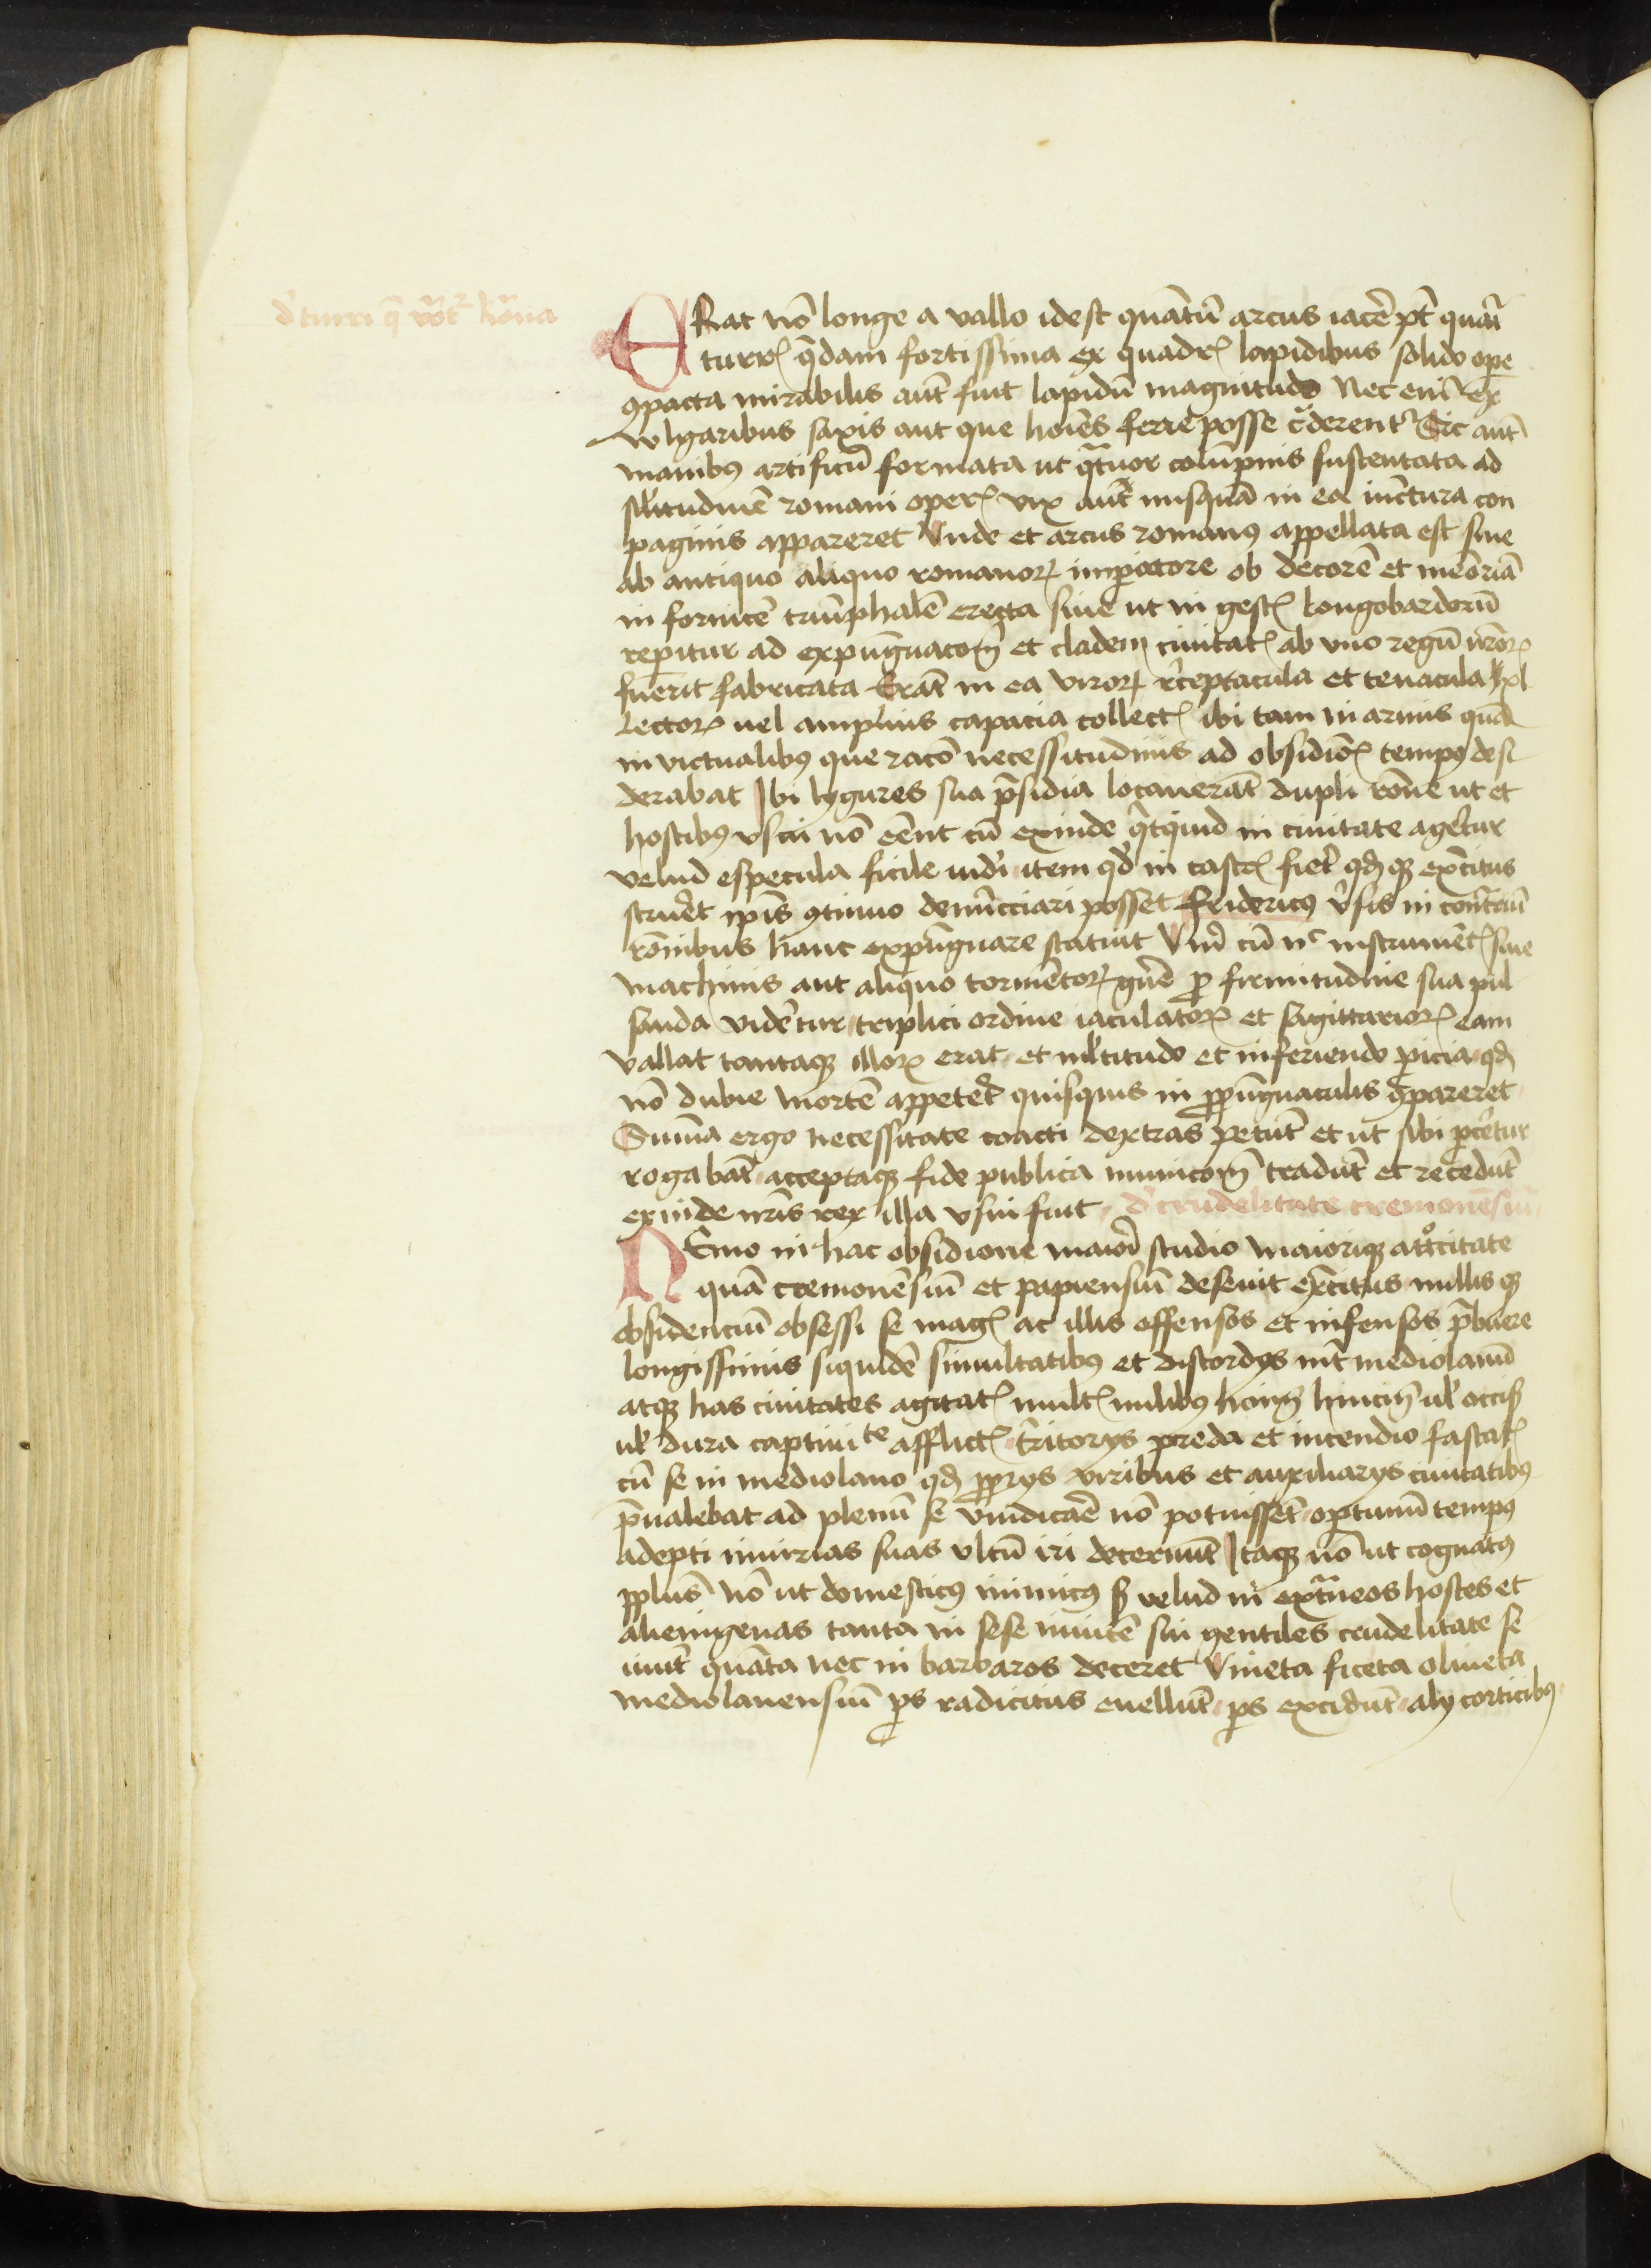 d' turri q̄ voca͞t͛ ro͞ma͞na
ERat nō longe a vallo idest quātū arcus iacē p̄t quā
turr̄ q̄dam fortissima ex quadr̄ lapidibus solido ope
ꝯpacta mirabilis aut̄ fuit lapidū magnitudo Nec enī ex
wlgaribus saxis aut que hoīes ferre posse c̄derent͛ Sic aut̄
manibꝰ artificū formata ut q̄tuor colūpnis sustentata ad
sil̄itudinē romani oper̄ vix aut nusquā in ea iūctura con
paginis appareret Vnde et arcus romanꝰ appellata est siue
ab antiquo aliquo romanoꝝ impatore ob decorē et meōriā
in fornicē triūphalē erecta siue ut in gest̄ Longobardorū
repitur ad expūgnacōꝫ et cladem ciuitat̄ ab vno regū nr̄orꝝ
fuerit fabricata Erāt in ea viroꝝ r̄ceptacula et cenacula xl
lectoꝝ uel amplius capacia collect̄ ibi tam in armis quā
in victualibꝰ que racō necessitudinis ad obsidiōꝫ tempꝰ desi
derabat Ibi lygures sua p̄sidia locauerāt dupli rōne ut et
hostibꝰ vsui nō eēnt cū exinde q̄tquid in ciuitate ageretur
velud especula ficile uid'i item qd' in castr̄ fiet' qđ qꝫ exc̄itus
strueret ip̄is ꝯtinuo denūcciari posset Fridericꝰ v'sis in cont̄riū
rōnibus hanc expūgnare statuit Vnd' cū nͨ instrumēt̄ siue
machinis aut aliquo tormētoꝝ gn̄e ꝓ firmitudine sua pul
sanda vidētur triplici ordine iaculatoꝝ et sagittarioꝝ eam
vallat tantaqꝫ illoꝝ erat et ml̄titudo et inferiendo ꝑicia qđ
nō dubie mortē appetet' quisquis in ꝓpūgnaculis ꝯpareret
Sum̄a ergo necessitate coacti dextras petūt et ut sibi pc̄etur
rogabāt acceptaqꝫ fide publica municōꝫ tradūt et recedūt
exinde nr̄is rex illa vsui fuit d' crudelitate cremonēsiū
NEmo in hac obsidione maiori studio maioriqꝫ att̊citate
quā cremonēsiū et papiensiū deseuit exc̄itus nullis qꝫ
obsidenciū obsessi se maḡ ac illis offensos et infensos p̄buere
longissimis siquidē simultatibꝰ et discordys int̄ mediolanū
atqꝫ has ciuitates agitat̄ mult̄ milibꝰ hoīꝫ hincin̄ ul' occiß
ul' dura captiui te afflict̄ t̄ritorys preda et incendio fastat̄
cū se in mediolano qđ ꝓpys viribus et auxiliarys ciuitatibꝰ
p̄ualebat ad plenū se vindicāe nō potuissēt oportunū tempꝰ
adepti iniurias suas vltū iri decernūt Itaqꝫ nō ut cognatꝰ
pplus̄ nō ut domesticꝰ inimicꝰ sꝫ velud in ext̄neos hostes et
alienigenas tanta in sese inuicē sui gentiles crudelitate se
uiūt quāta nec in barbaros deceret Vineta ficeta oliueta
mediolanensiū ps radicitus euellūt ps excidūt aly corticibꝰ